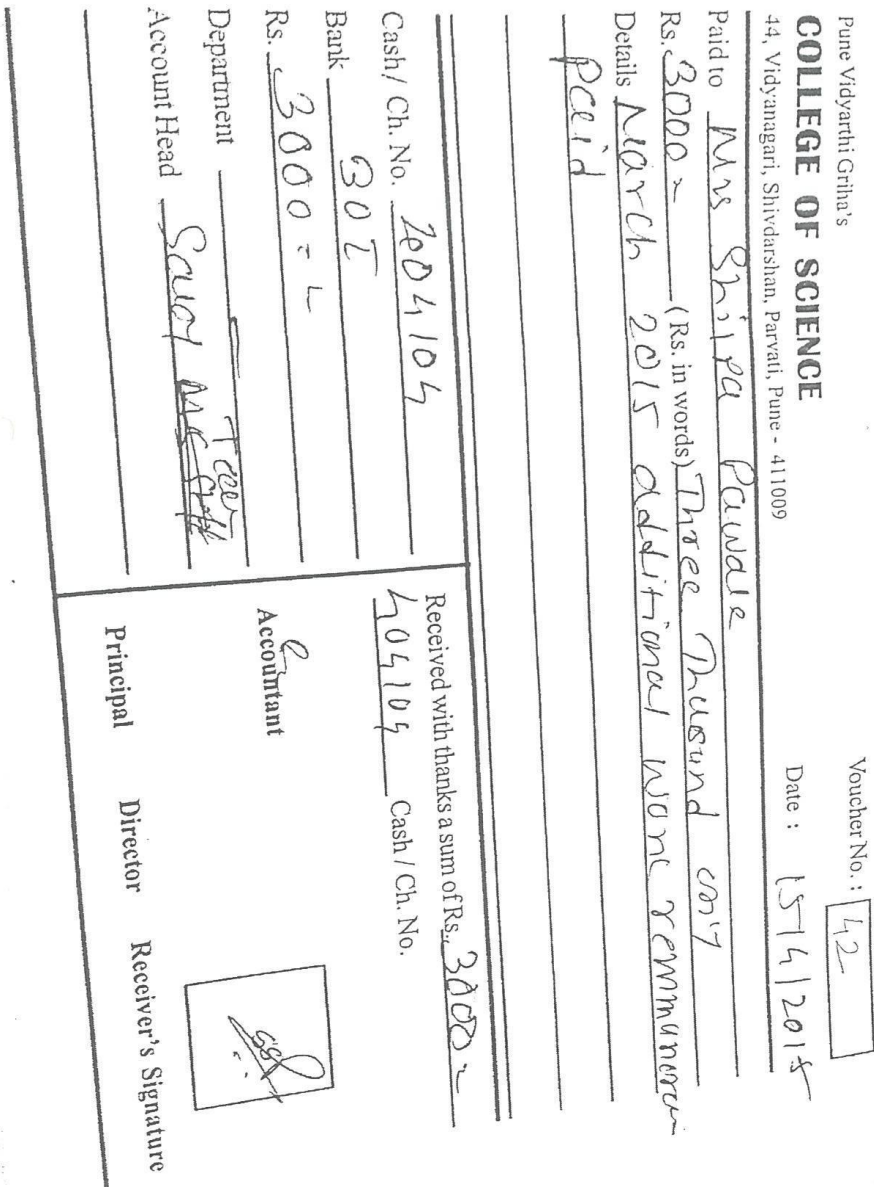 Pune Vidyarthi Griha's
COLLEGE OF SCIENCE
44, Vidyanagari, Shivdarshan, Parvati, Pune - 411009
Voucher No. : 42
Date : 15/4/2015
Paid to Mrs Shilpa Pawale
Rs. 3000 = (Rs. in words) Three Thusund only
Details March 2015 additional
Paid
Cash / Ch. No. 204104
Bank BOI
Rs. 3000 =
Department
Account Head Salary
Received with thanks a sum of Rs. 3000 =
404104 Cash / Ch. No.
Accountant
Principal Director Receiver's Signature